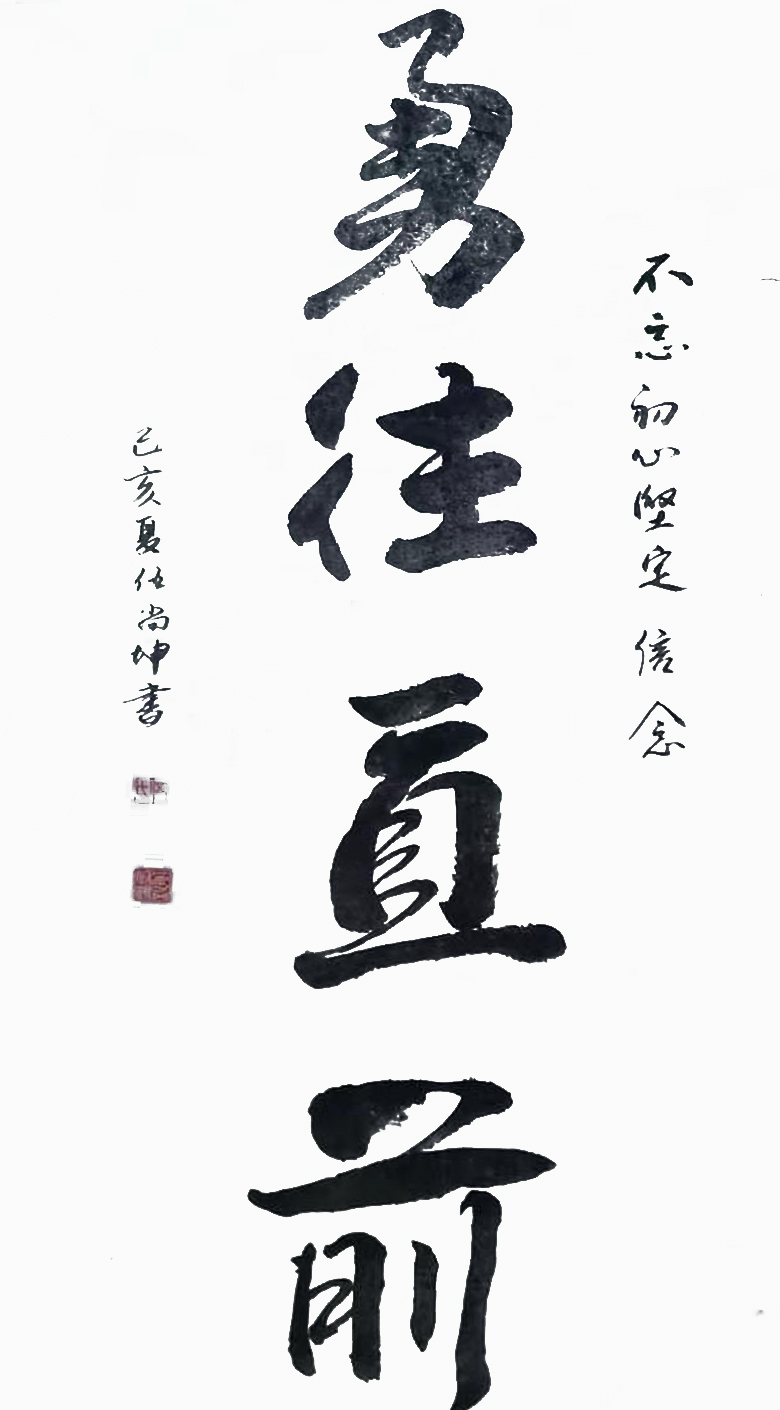 不忘初心堅定信念
勇往直前
己亥夏伍尚坤書